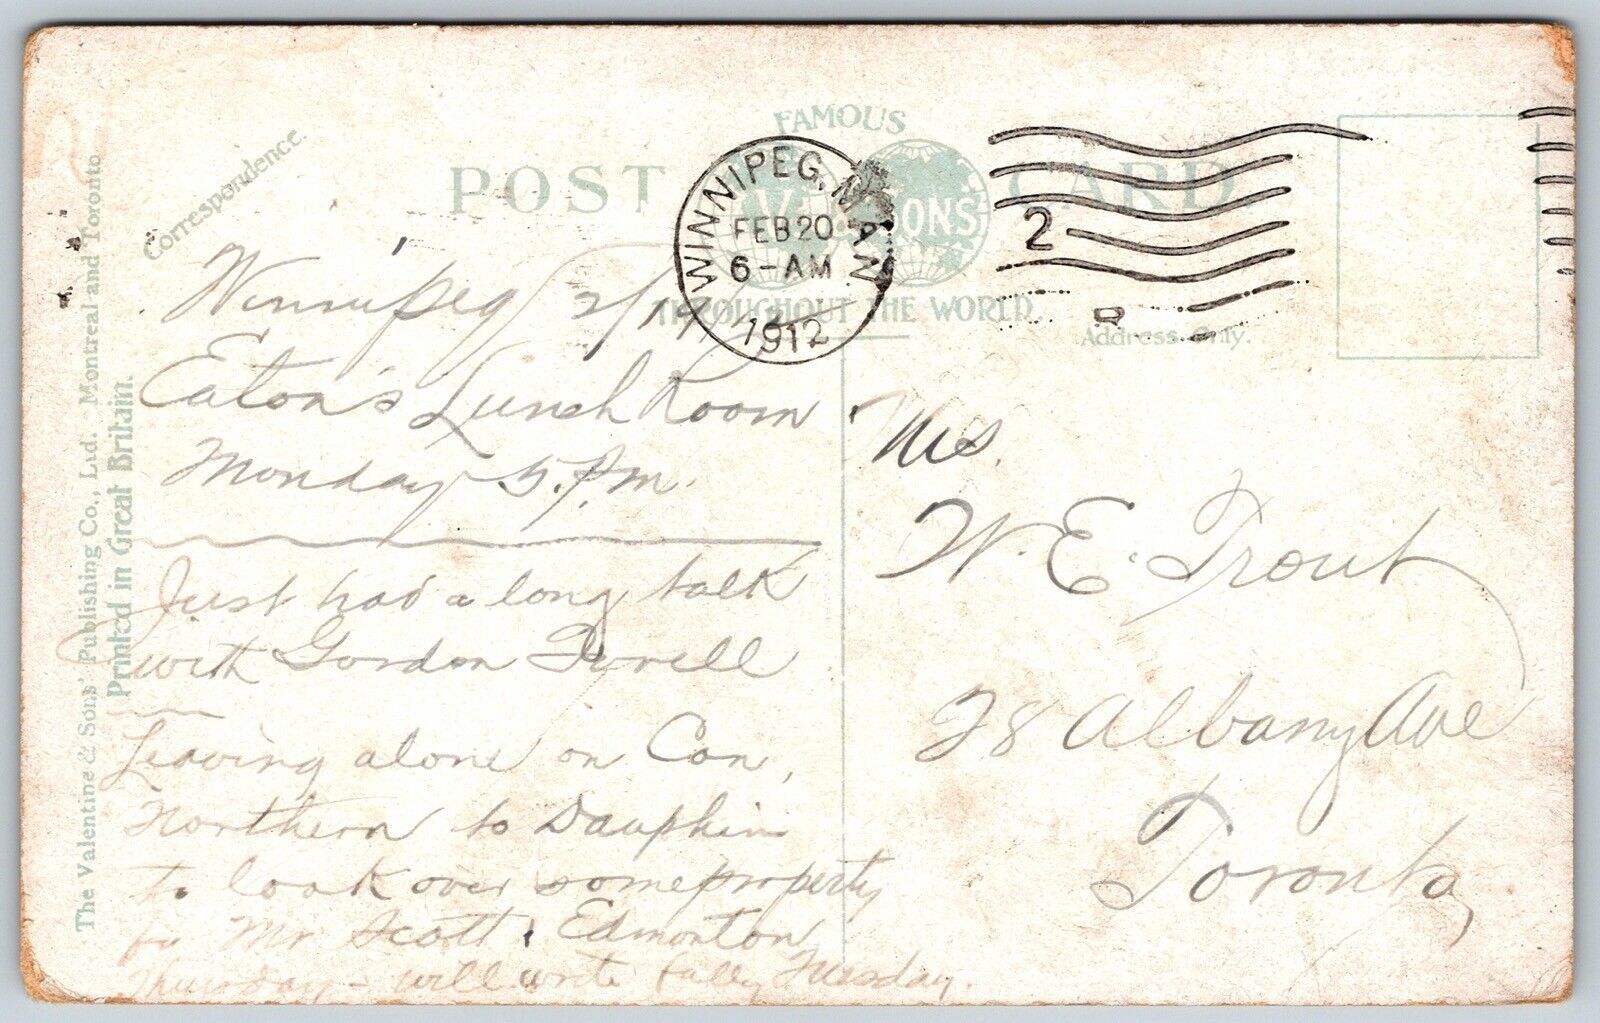 The Valentine & Sons' Publishing Co., Ltd. Montreal and Toronto.
Printed in Great Britain.
Correspondence.
POST CARD
FAMOUS
V. SONS
THROUGHOUT THE WORLD.
WINNIPEG, MAN
FEB 20
6-AM
1912
2
Address Only.
Winnipeg 2/19/12
Eaton's Lunch Room
Monday 5.P.m.
Just had a long talk
with Gordon
Leaving alone on Can.
Northern to Dauphin
to look over some property
for Mr Scott. Edmonton
Thursday - will write fully Tuesday.
Mrs.
W. E. Trout
28 Albany Ave
Toronto,